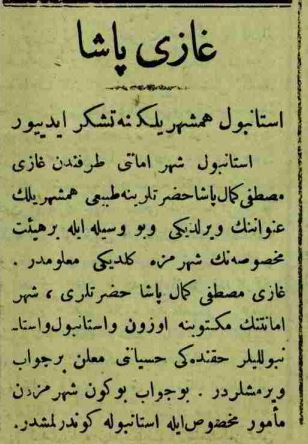 غازی پاشا
استانبول همشهریلکنه تشکر ایدییور
استانبول شهر امانتی طرفندن غازی
مصطفی کمال پاشا حضرتلرینه طبیعی همشهریلك
عنواننك ویرلدیکی وبو وسیله ایله برهیئت
مخصوصه‌نك شهرمزه کلدیکی معلومدر .
غازی مصطفی کمال پاشا حضرتلری ، شهر
امانتنك مکتوبنه اوزون واستانبول واستا-
نبوللیلر حقنده‌کی حسیاتنی معلن برجواب
ویرمشلردر . بوجواب بوکون شهرمزدن
مأمور مخصوص ایله استانبوله کوندرلمشدر.